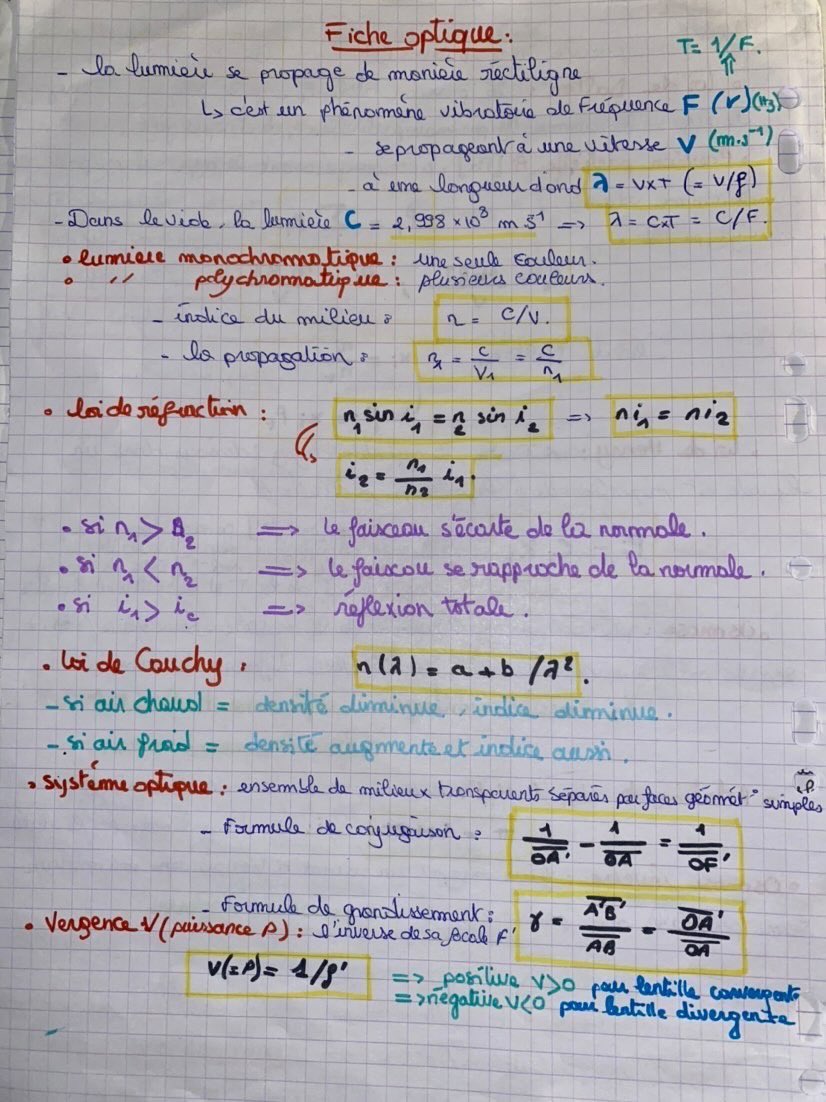 Fiche optique :
T = 1/F.
- la lumière se propage de manière rectiligne
↳ c'est un phénomène vibratoire de Fréquence F (ν) (Hz)
- se propageant à une vitesse V (m.s⁻¹)
- à une longueur d'ond λ = V×T (= V/f)
- Dans le vide, la lumière C = 2,998 × 10⁸ m s⁻¹ => λ = C×T = C/F.
• lumière monochromatique : une seule couleur.
• " polychromatique : plusieurs couleurs.
- indice du milieu : n = C/V.
- la propagation : n₁ = C/V₁ = C/n₁
• loi de réfraction : n₁ sin i₁ = n₂ sin i₂ => n i₁ = n i₂
↳ i₂ = n₁/n₂ i₁.
• si n₁ > n₂ => le faisceau s'écarte de la normale.
• si n₁ < n₂ => le faiscou se rapproche de la normale.
• si i₁ > ic => réflexion totale.
• loi de Cauchy : n(λ) = a + b / λ².
- si air chaud = densité diminue, indice diminue.
- si air froid = densité augmente et indice aussi.
• système optique : ensemble de milieux transparents séparés par faces géomét° simples
- Formule de conjugaison : 1/OA' - 1/OA = 1/OF'
- Formule de grandissement : γ = A'B'/AB = OA'/OA
• Vergence V (puissance P) : l'inverse de sa focale F'
V(=P) = 1/f' => positive V>0 pour lentille convergente
=> négative V<0 pour lentille divergente